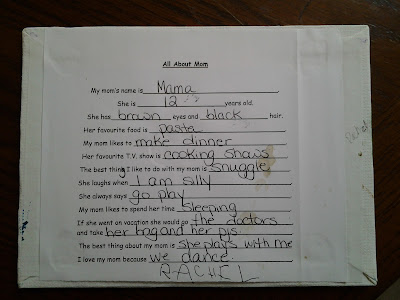 All About Mom
My mom's name is Mama
She is 12 years old.
She has brown eyes and black hair.
Her favourite food is pasta
My mom likes to make dinner
Her favourite T.V. show is cooking shows
The best thing I like to do with my mom is snuggle
She laughs when I am silly
She always says go play
My mom likes to spend her time sleeping
If she went on vacation she would go the doctors
and take her bag and her pjs
The best thing about my mom is she plays with me
I love my mom because we dance.
RACHEL